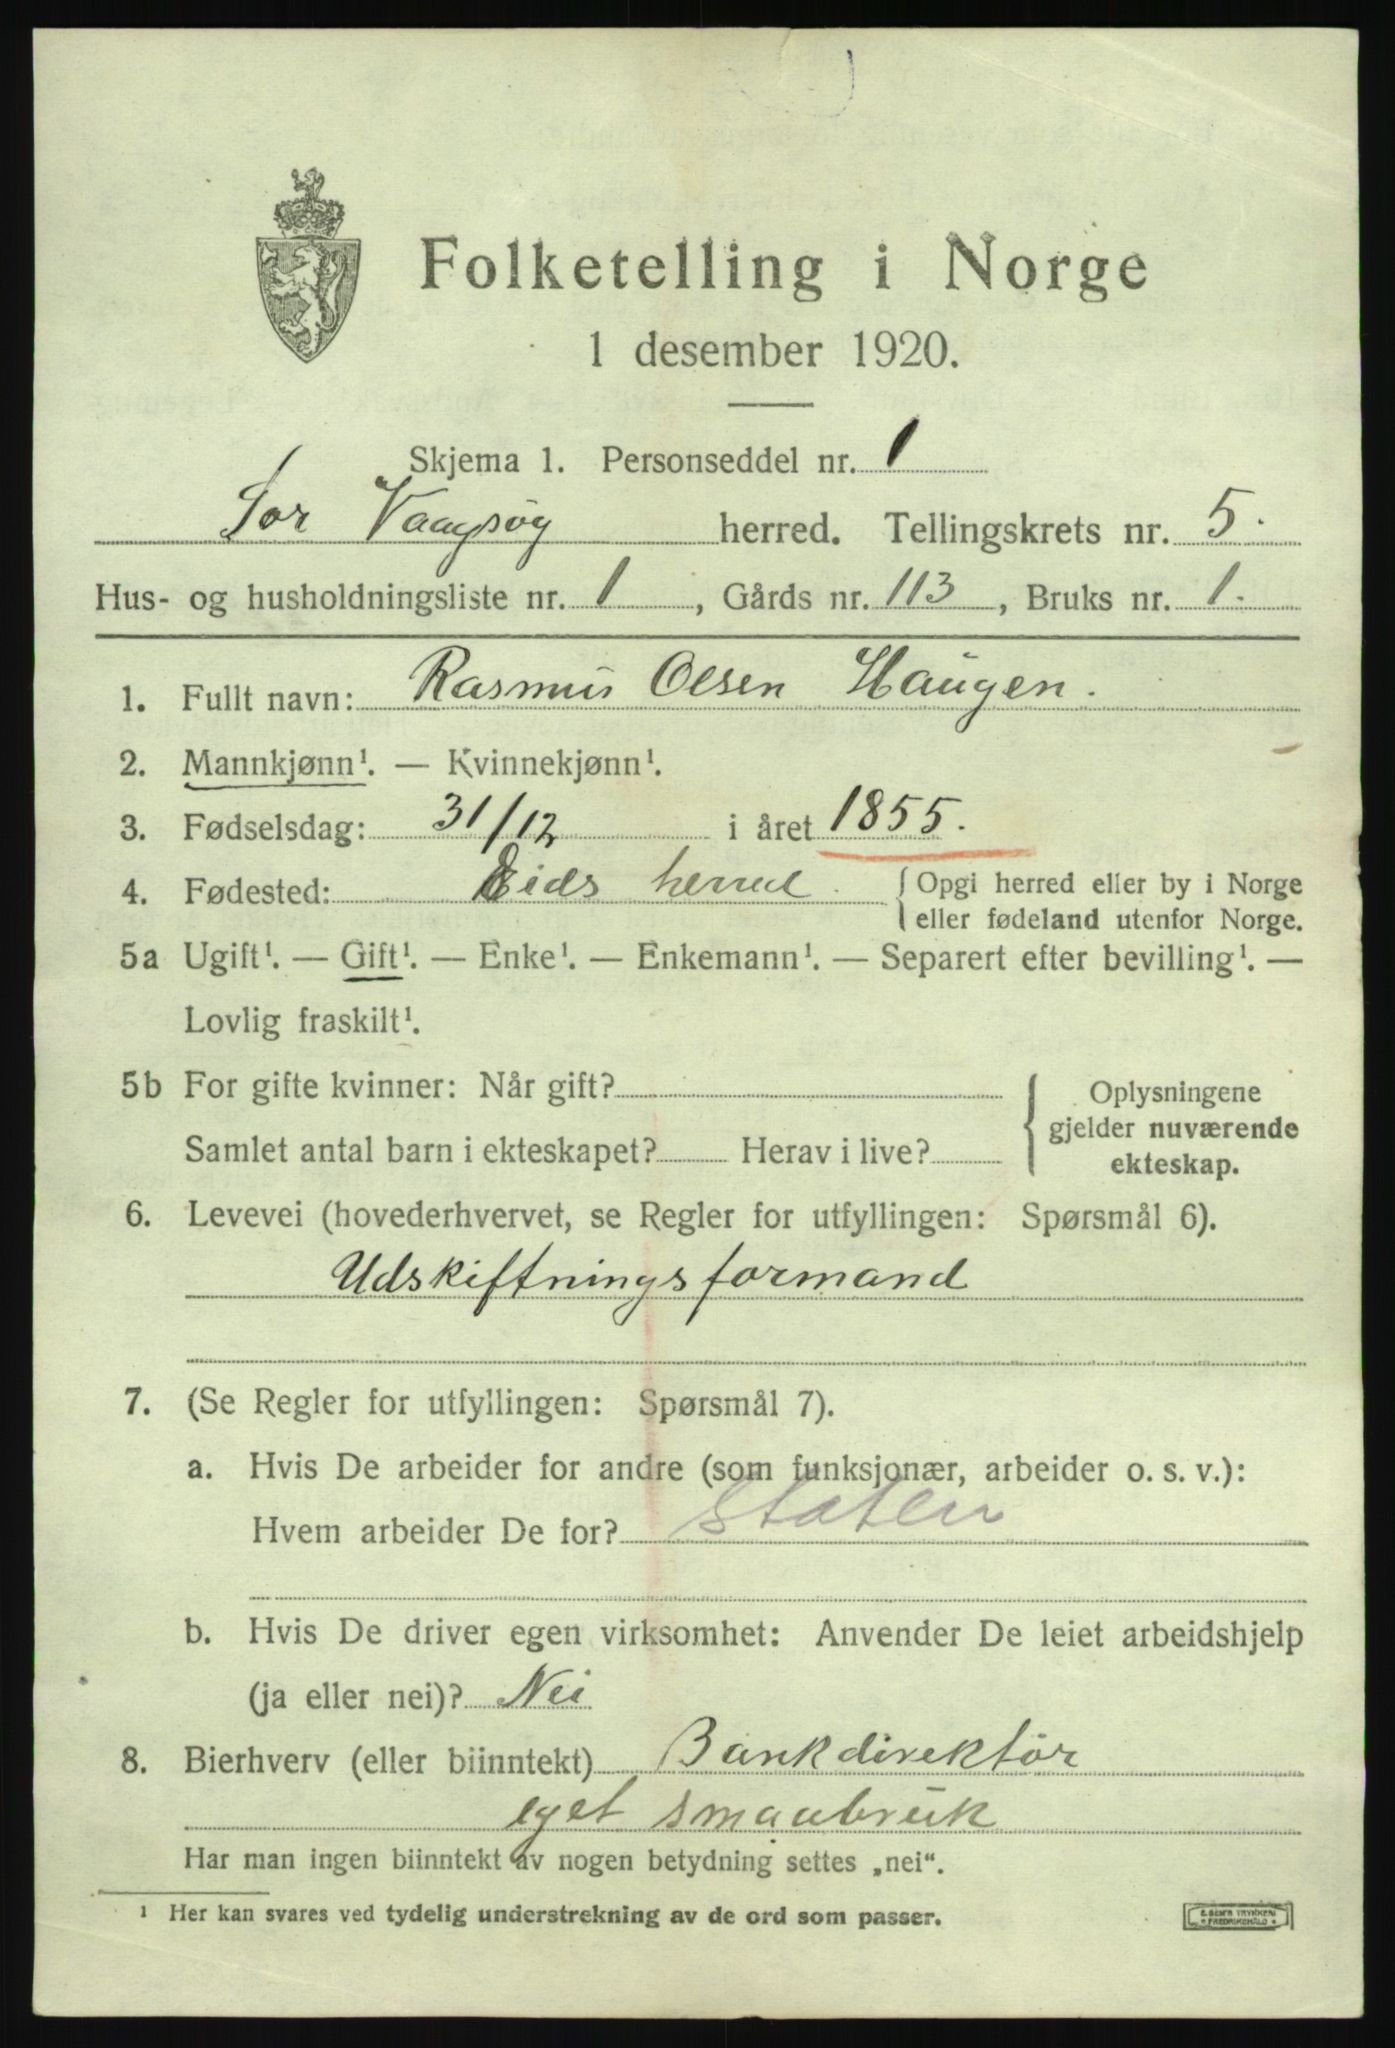 Folketelling i Norge
1 desember 1920.
Skjema 1. Personseddel nr. 1
Sør Vaagsøy herred. Tellingskrets nr. 5.
Hus- og husholdningsliste nr. 1, Gårds nr. 113, Bruks nr. 1.
1. Fullt navn: Rasmus Olsen Haugen.
2. Mannkjønn¹. — Kvinnekjønn¹.
3. Fødselsdag: 31/12 i året 1855.
4. Fødested: Eids herred. { Opgi herred eller by i Norge
eller fødeland utenfor Norge.
5a Ugift¹. — Gift¹. — Enke¹. — Enkemann¹. — Separert efter bevilling¹. —
Lovlig fraskilt¹.
5b For gifte kvinner: Når gift? { Oplysningene
gjelder nuværende
Samlet antal barn i ekteskapet? Herav i live?
ekteskap.
6. Levevei (hovederhvervet, se Regler for utfyllingen: Spørsmål 6).
Udskiftningsformand
7. (Se Regler for utfyllingen: Spørsmål 7).
a. Hvis De arbeider for andre (som funksjonær, arbeider o. s. v.):
Hvem arbeider De for? Staten
b. Hvis De driver egen virksomhet: Anvender De leiet arbeidshjelp
(ja eller nei)? Nei
8. Bierhverv (eller biinntekt) Bankdirektør
eget smaabruk
Har man ingen biinntekt av nogen betydning settes „nei“.
¹ Her kan svares ved tydelig understrekning av de ord som passer.
E. SEM'S TRYKKERI
FREDRIKSHALD